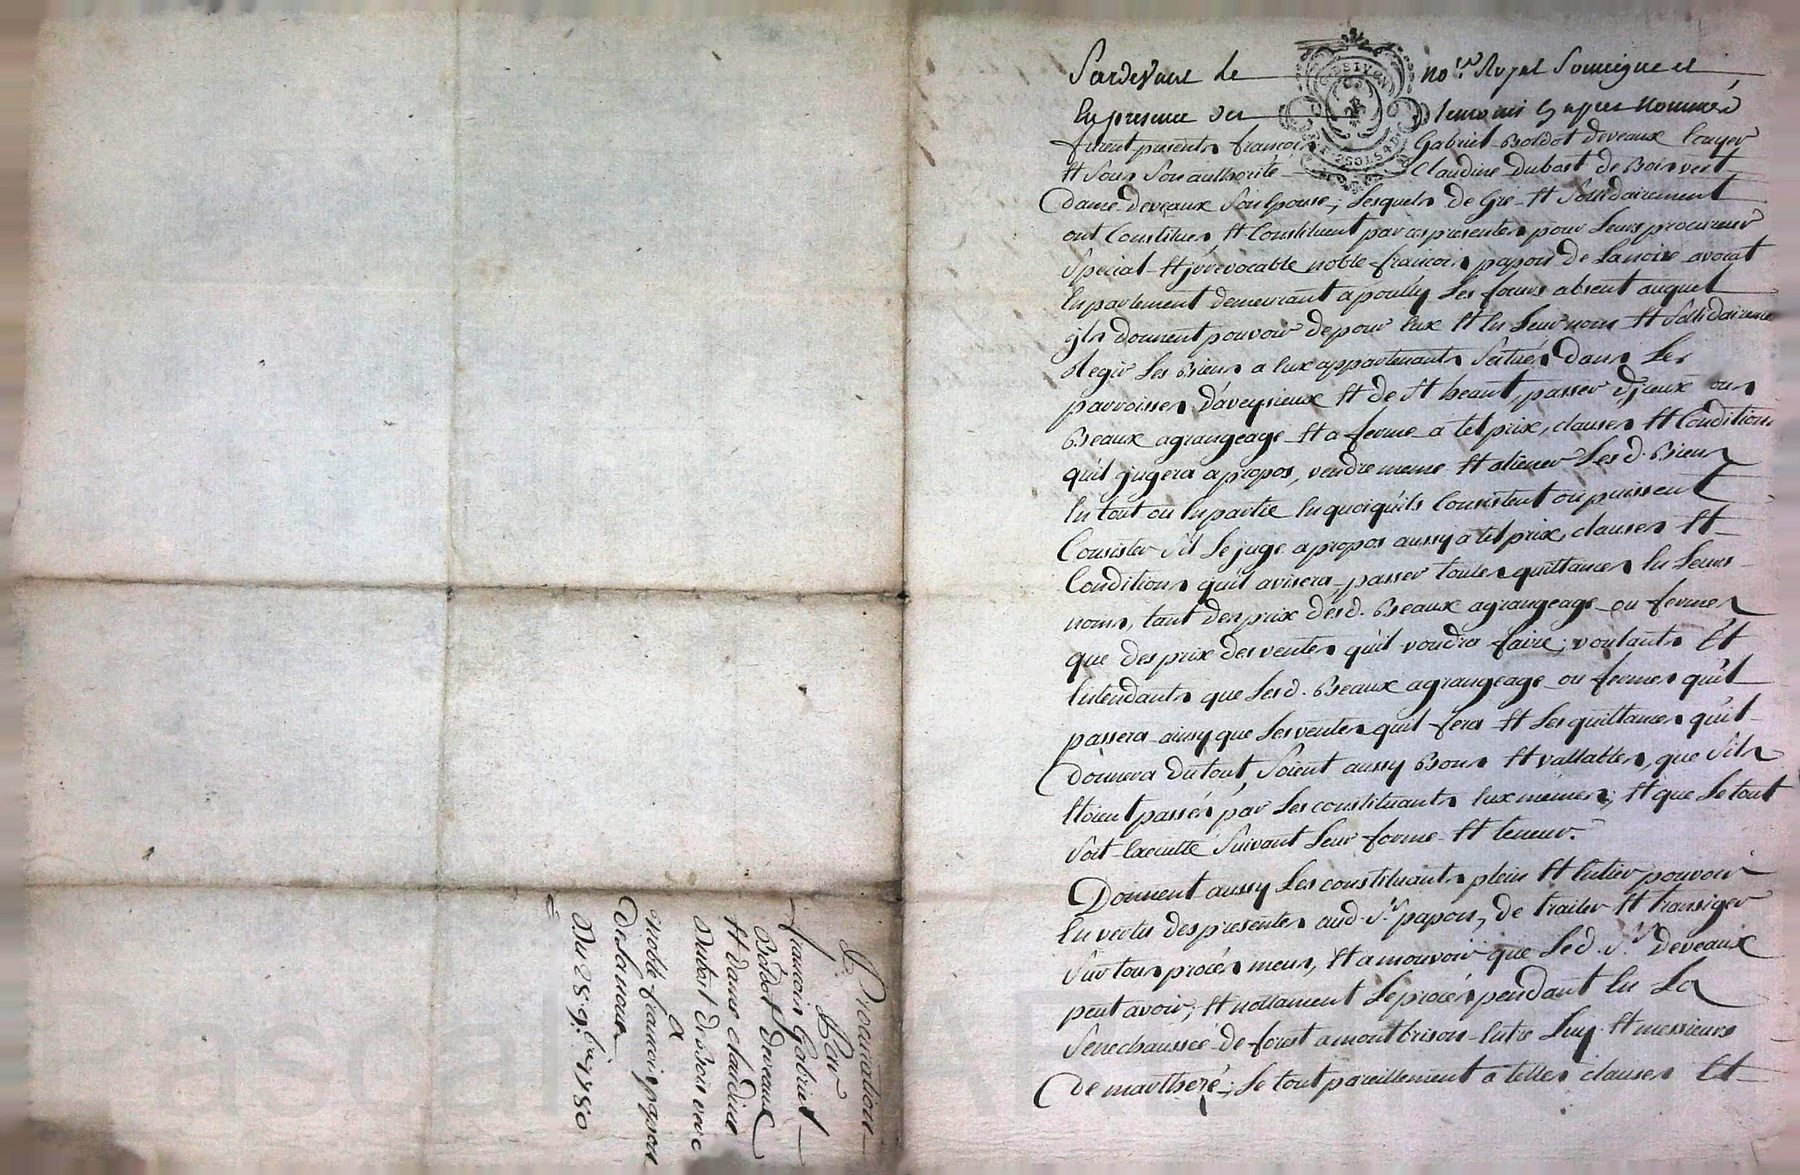 Pardevant le no.re Royal Soussigné et
En presence des temoins Cy apres nommés
furent presents francois Gabriel Boldot deveaux Ecuyer
Et Sous Son authorité Claudine Dubost de Boisvert
dame deveaux Son Epouse, Lesquels de Gré Et Solidairement
ont Constitués Et Constituent par ces presentes pour Leurs procureur
Special Et jrrevocable noble francois papon de Lanoire avocat
En parlement demeurant a pouilly Les feurs absent auquel
jls donnent pouvoir de pour Eux Et En Leur nom Et Solidairement
Regir Les Biens a Eux appartenants Scitués dans Les
parroisses d'aveysieux Et de St heant, passer d'jceux ou
Beaux agrangeage Et a ferme a tel prix, clauses Et Conditions
qu'il jugera apropos, vendre meme Et aliener Lesd. Biens
En tout ou En partie En quoi qu'ils Consistent ou puissent
Consister S'il Le juge apropos aussy a tel prix, clauses Et
Conditions qu'il avisera passer toutes quittances En Leurs
noms, tant des prix desd. Beaux agrangeage ou fermes
que des prix des ventes qu'il voudra faire; voulants Et
Entendants que Lesd. Beaux agrangeage ou fermes qu'il
passera ainsy que Les ventes qu'il fera Et Les quittances qu'il
donnera du tout, Soient aussy Bons Et vallables, que S'ils
Etoient passés par Les constituants Eux mêmes; Et que Le tout
Soit Executté Suivant Leur forme Et teneur.
Donnent aussy Les constituants plein Et Entier pouvoir
En vertu des presentes aud. Sr. papon, de traiter Et transiger
Sur tous procès meus, Et a mouvoir que Led. Sr. Deveaux
peut avoir; Et nottament Le procès pendant En La
Senechaussée de forest a montbrison Entre Luy Et messieurs
de martheré; Le tout pareillement a telles clauses Et
Procuration
Par
francois Gabriel
Boldot Deveaux
Et Dame claudine
Dubost de Bois vert
a
noble francois papon
de Lanoire
Du 28. 9.bre 1780